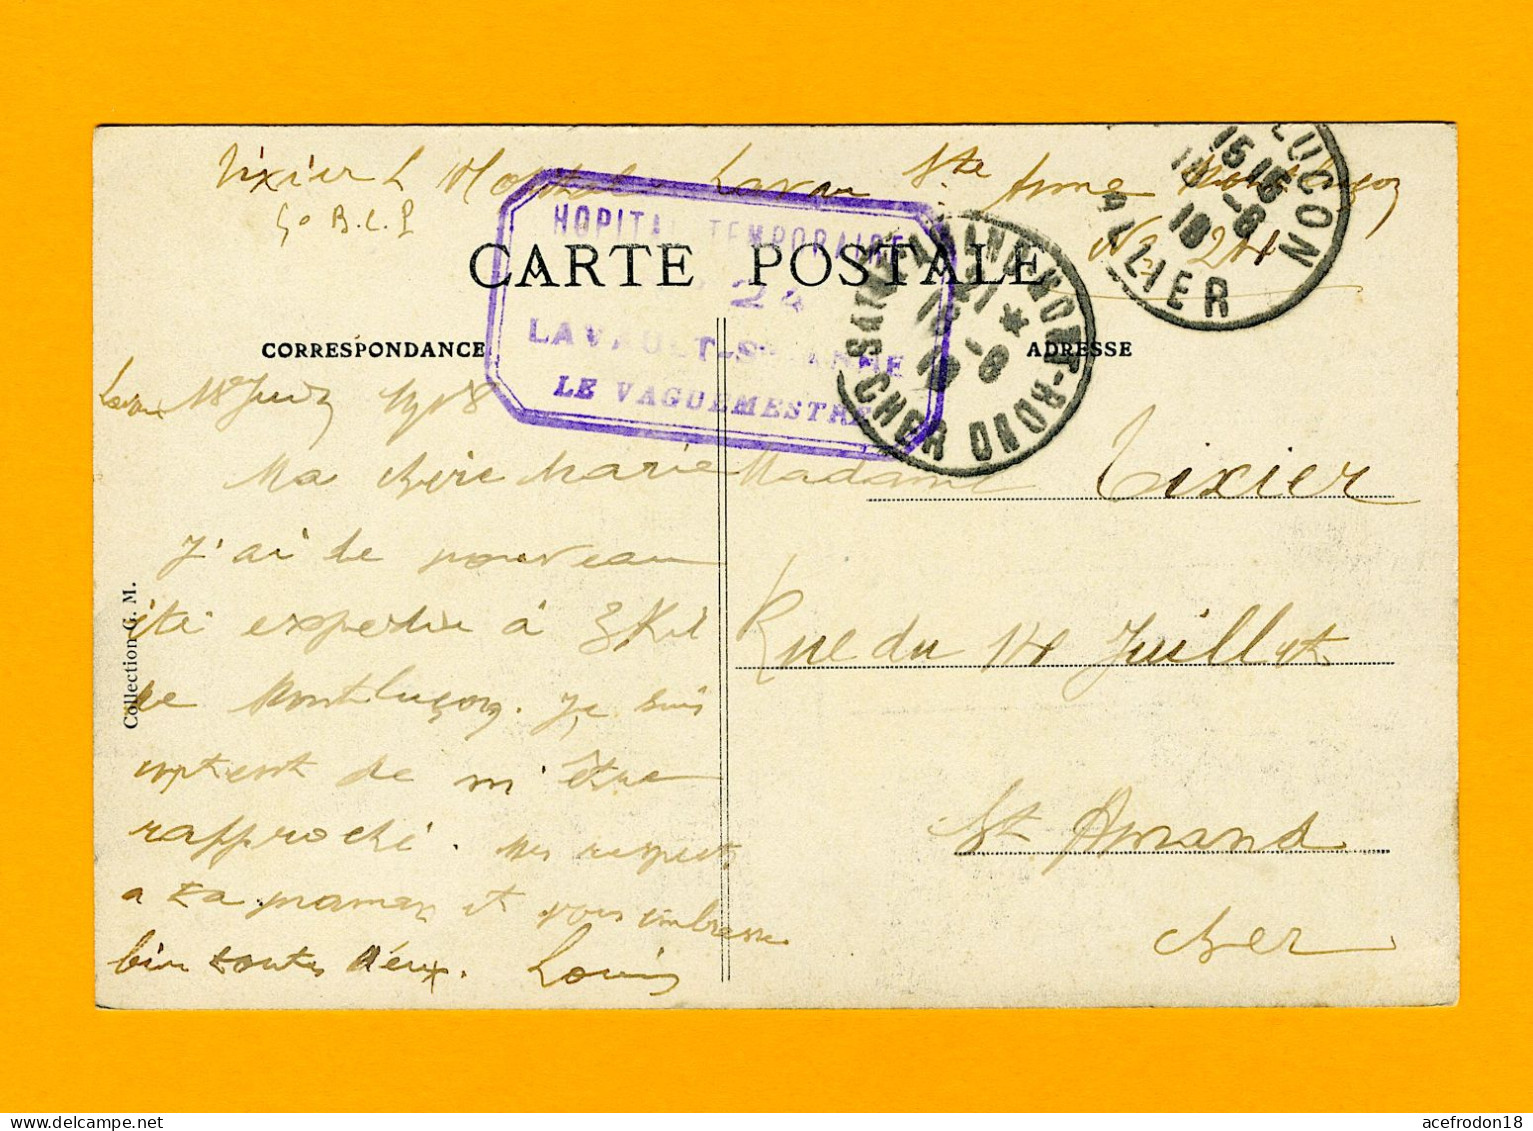 Tixier L Hopital Lavau Ste Anne Montluçon
No 24
CARTE POSTALE
HOPITAL TEMPORAIRE
24
LAVAULT-STE-ANNE
LE VAGUEMESTRE
LUCON
15 15
18 -6
18
ALLIER
SAINT-AMAND-MONT-ROND
CHER
CORRESPONDANCE
ADRESSE
Lavau 18 Juin 1918
Ma chère Marie
J'ai de nouveau
été expedie à
de Montluçon. Je suis
content de m'être
rapproché. Mes respects
a ta maman et vous embrasse
bien toutes deux. Louis
Madame Tixier
Rue du 14 Juillet
St Amand
Cher
Collection G. M.
acefrodon18